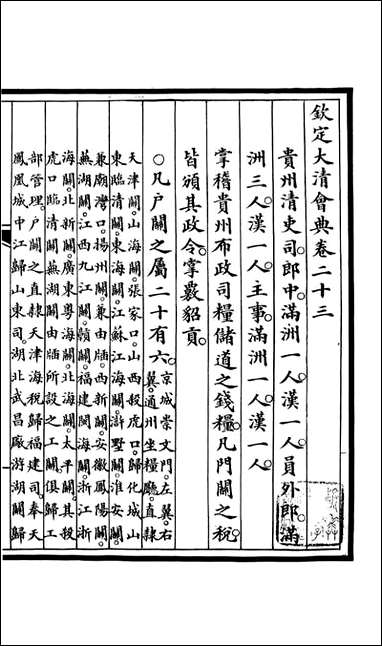 欽定大清會典卷二十三
貴州清吏司。郎中。滿洲一人。漢一人。員外郎。滿
洲三人。漢一人。主事。滿洲一人。漢一人。
掌稽貴州布政司糧儲道之錢糧。凡門關之稅。
皆頒其政令。掌覈貂貢。
○凡戶關之屬二十有六。京城崇文門。左翼。右
翼。通州坐糧廳。直隸
天津關。山海關。張家口。山西殺虎口。歸化城。山
東臨清關。東海關。江蘇江海關。滸墅關。淮安關。
兼廟灣口。揚州關。兼由牐。西新關。安徽鳳陽關。
蕪湖關。江西九江關。贛關。福建閩海關。浙江浙
海關。北新關。廣東粵海關。北海關。太平關。其殺
虎口臨清關蕪湖關由牐所設之工關。俱歸工
部管理。戶關之直隸天津海稅。歸福建司。奉天
鳳凰城中江。歸山東司。湖北武昌廠游湖關。歸